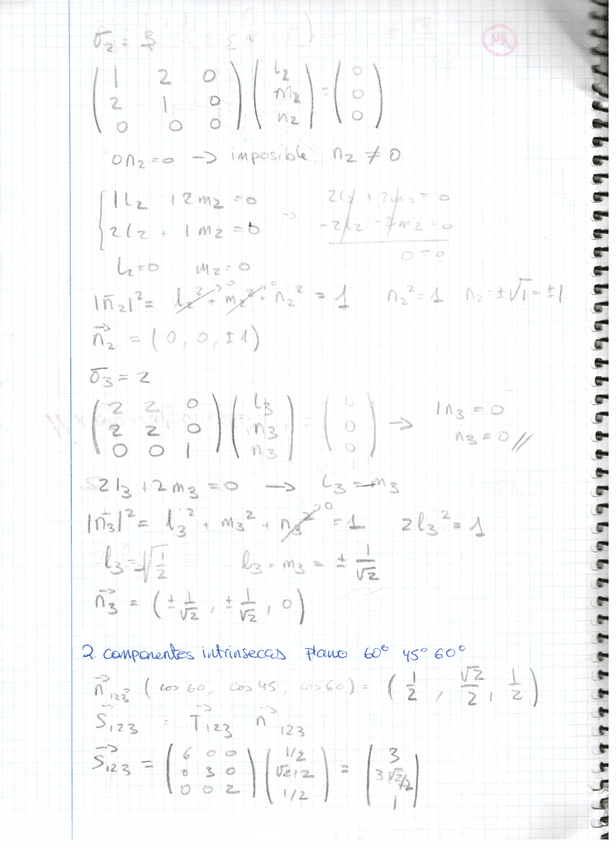 σ₂ = 3
( 1 2 0 ; 2 1 0 ; 0 0 0 ) ( l₂ ; m₂ ; n₂ ) = ( 0 ; 0 ; 0 )
0n₂=0 → imposible n₂ ≠ 0
{ 1l₂ + 2m₂ = 0 → 2l₂ + 2m₂ = 0
2l₂ + 1m₂ = 0 -2l₂ - 2m₂ = 0
0 = 0
l₂=0 m₂=0
|n₂|² = l₂² + m₂² + n₂² = 1 n₂² = 1 n₂ = ±√1 = ±1
n₂ = (0, 0, ±1)
σ₃ = 2
( 2 2 0 ; 2 2 0 ; 0 0 1 ) ( l₃ ; n₃ ; n₃ ) = ( 0 ; 0 ; 0 ) → 1n₃ = 0
n₃ = 0 //
2l₃ + 2m₃ = 0 → l₃ = -m₃
|n₃|² = l₃² + m₃² + n₃² = 1 2l₃² = 1
l₃ = √1/2 l₃ = m₃ = ± 1/√2
n₃ = ( ± 1/√2 , ± 1/√2 , 0 )
2. componentes intrinsecas plano 60° 45° 60°
n₁₂₃ = (cos 60, cos 45, cos 60) = ( 1/2 , √2/2 , 1/2 )
S₁₂₃ = T₁₂₃ n₁₂₃
S₁₂₃ = ( 6 0 0 ; 0 3 0 ; 0 0 2 ) ( 1/2 ; √2/2 ; 1/2 ) = ( 3 ; 3√2/2 ; 1 )